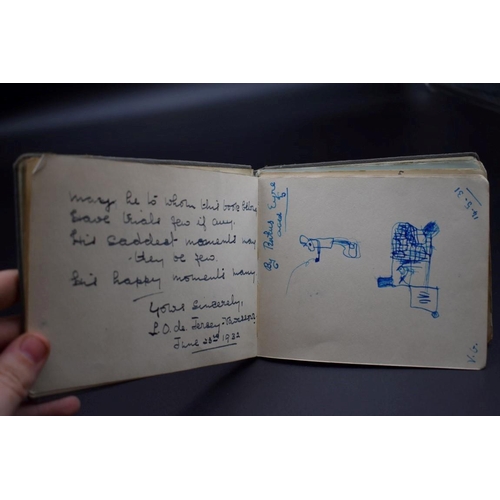 may he to whom this book belong
Have trials few if any.
His saddest moments may
they be few.
his happy moments many
Yours Sincerely,
L.O. de Jersey
June 28th 1932
By Eyre
aged 6
19-5-31